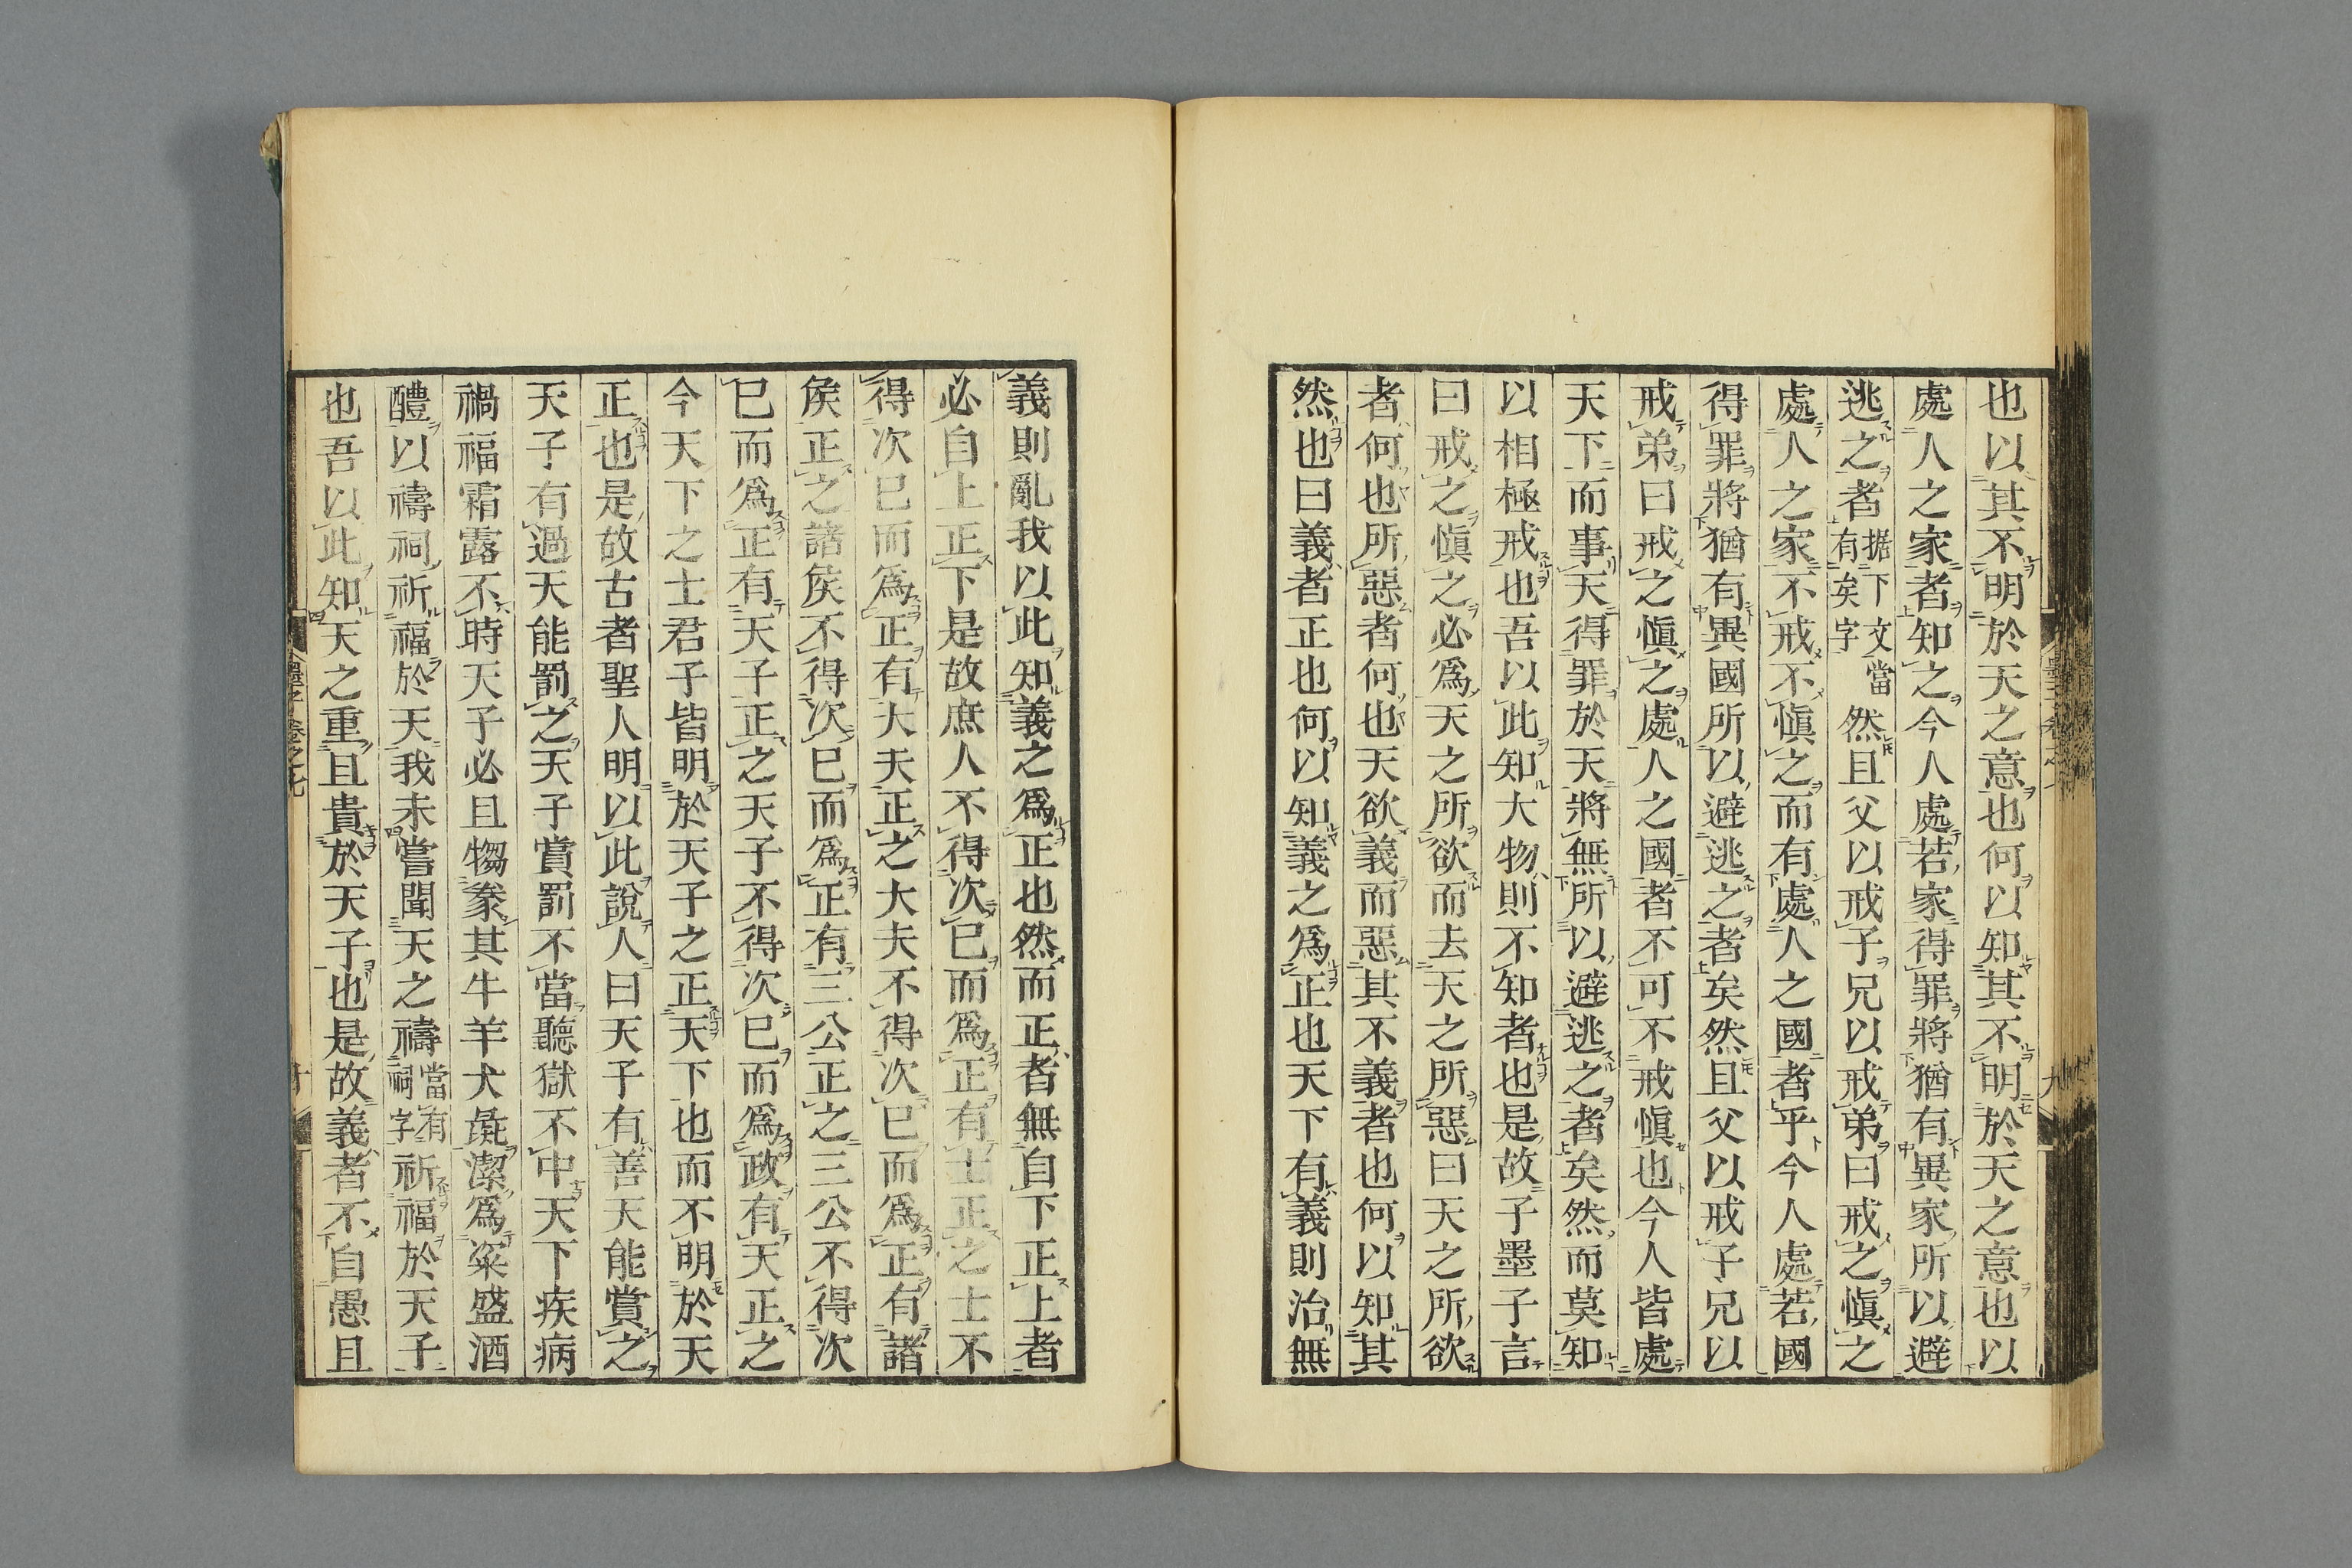 也以其不明於天之意也何以知其不明於天之意也以
處人之家者知之今人處若家得罪將猶有異家所以避
逃之者据下文當有矣字然且父以戒子兄以戒弟曰戒之愼之
處人之家不戒不愼之而有處人之國者乎今人處若國
得罪將猶有異國所以避逃之者矣然且父以戒子兄以
戒弟曰戒之愼之處人之國者不可不戒愼也今人皆處
天下而事天得罪於天將無所以避逃之者矣然而莫知
以相極戒也吾以此知大物則不知者也是故子墨子言
曰戒之愼之必爲天之所欲而去天之所惡曰天之所欲
者何也所惡者何也天欲義而惡其不義者也何以知其
然也曰義者正也何以知義之爲正也天下有義則治無
義則亂我以此知義之爲正也然而正者無自下正上者
必自上正下是故庶人不得次已而爲正有士正之士不
得次已而爲正有大夫正之大夫不得次已而爲正有諸
矦正之諸矦不得次已而爲正有三公正之三公不得次
已而爲正有天子正之天子不得次已而爲政有天正之
今天下之士君子皆明於天子之正天下也而不明於天
正也是故古者聖人明以此說人曰天子有善天能賞之
天子有過天能罰之天子賞罰不當聽獄不中天下疾病
禍福霜露不時天子必且犓豢其牛羊犬彘潔爲粢盛酒
醴以禱祠祈福於天我未嘗聞天之禱當有祠字祈福於天子
也吾以此知天之重且貴於天子也是故義者不自愚且
墨子卷之七
十